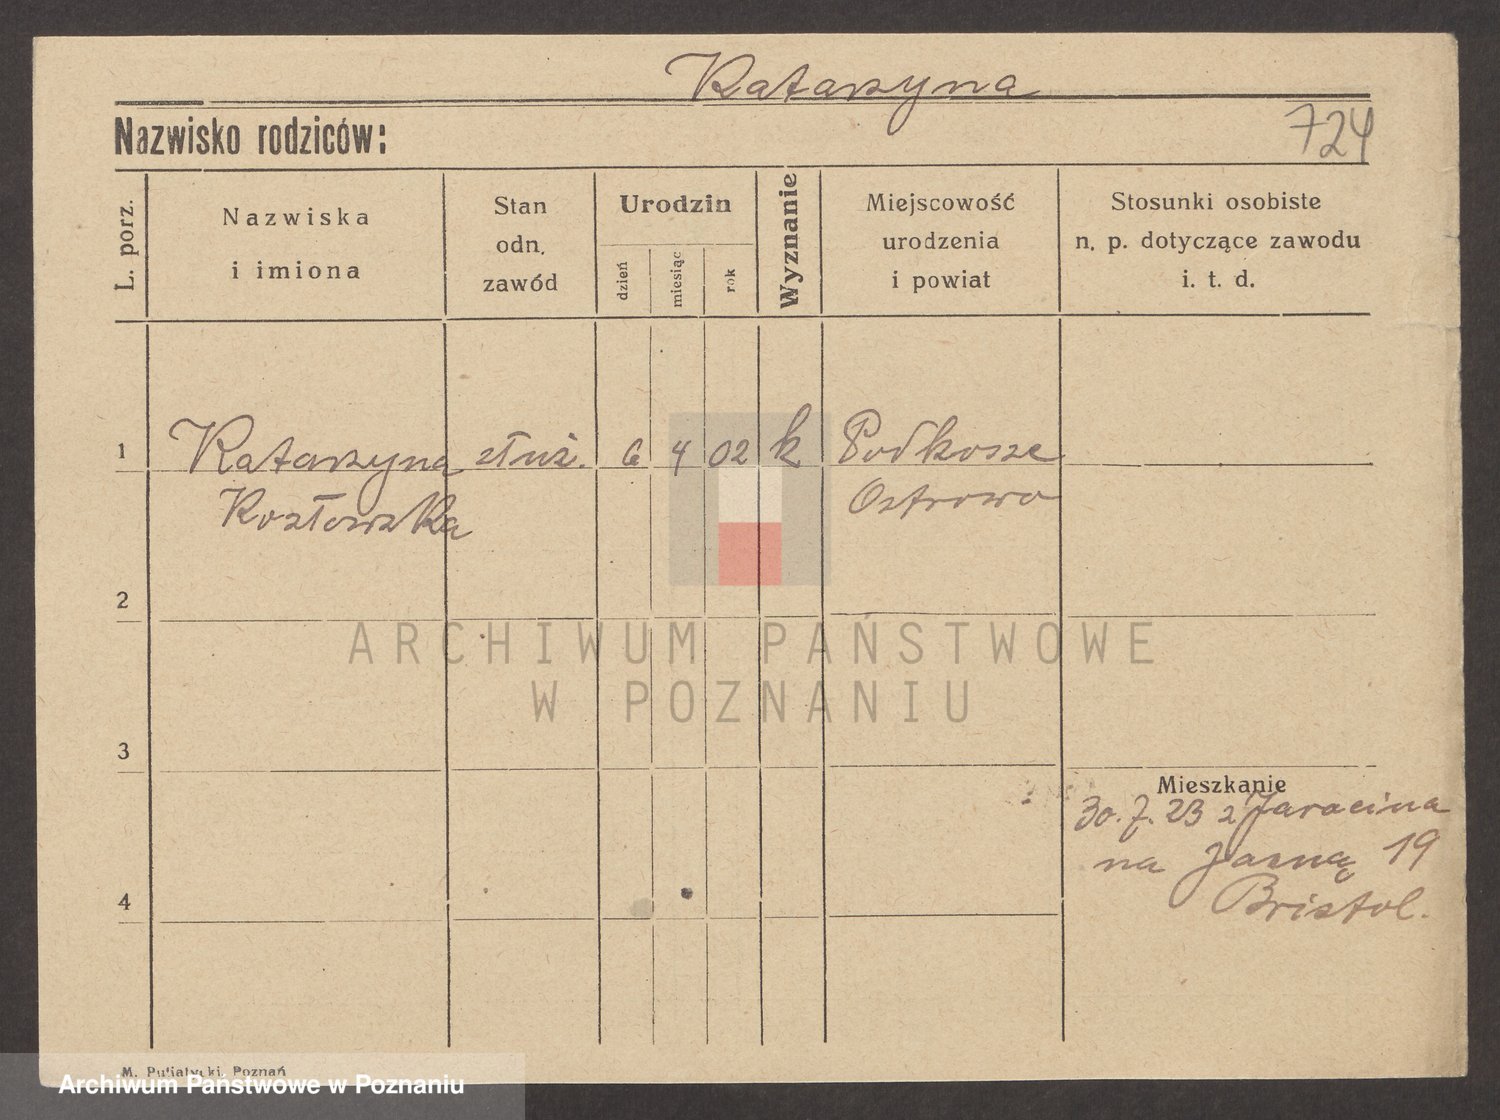 Katarzyna
Nazwisko rodziców:
724
L. porz.
Nazwiska
i imiona
Stan
odn.
zawód
Urodzin
dzień
miesiąc
rok
Wyznanie
Miejscowość
urodzenia
i powiat
Stosunki osobiste
n. p. dotyczące zawodu
i. t. d.
1
Katarzyna służ. 6 4 02 k Podkosze
Kozłowska Ostrowo
2
ARCHIWUM PAŃSTWOWE
W POZNANIU
3
Mieszkanie
30. 7. 23 z Jaracina
na Jasną 19
Bristol.
4
M. Putiatycki, Poznań
Archiwum Państwowe w Poznaniu